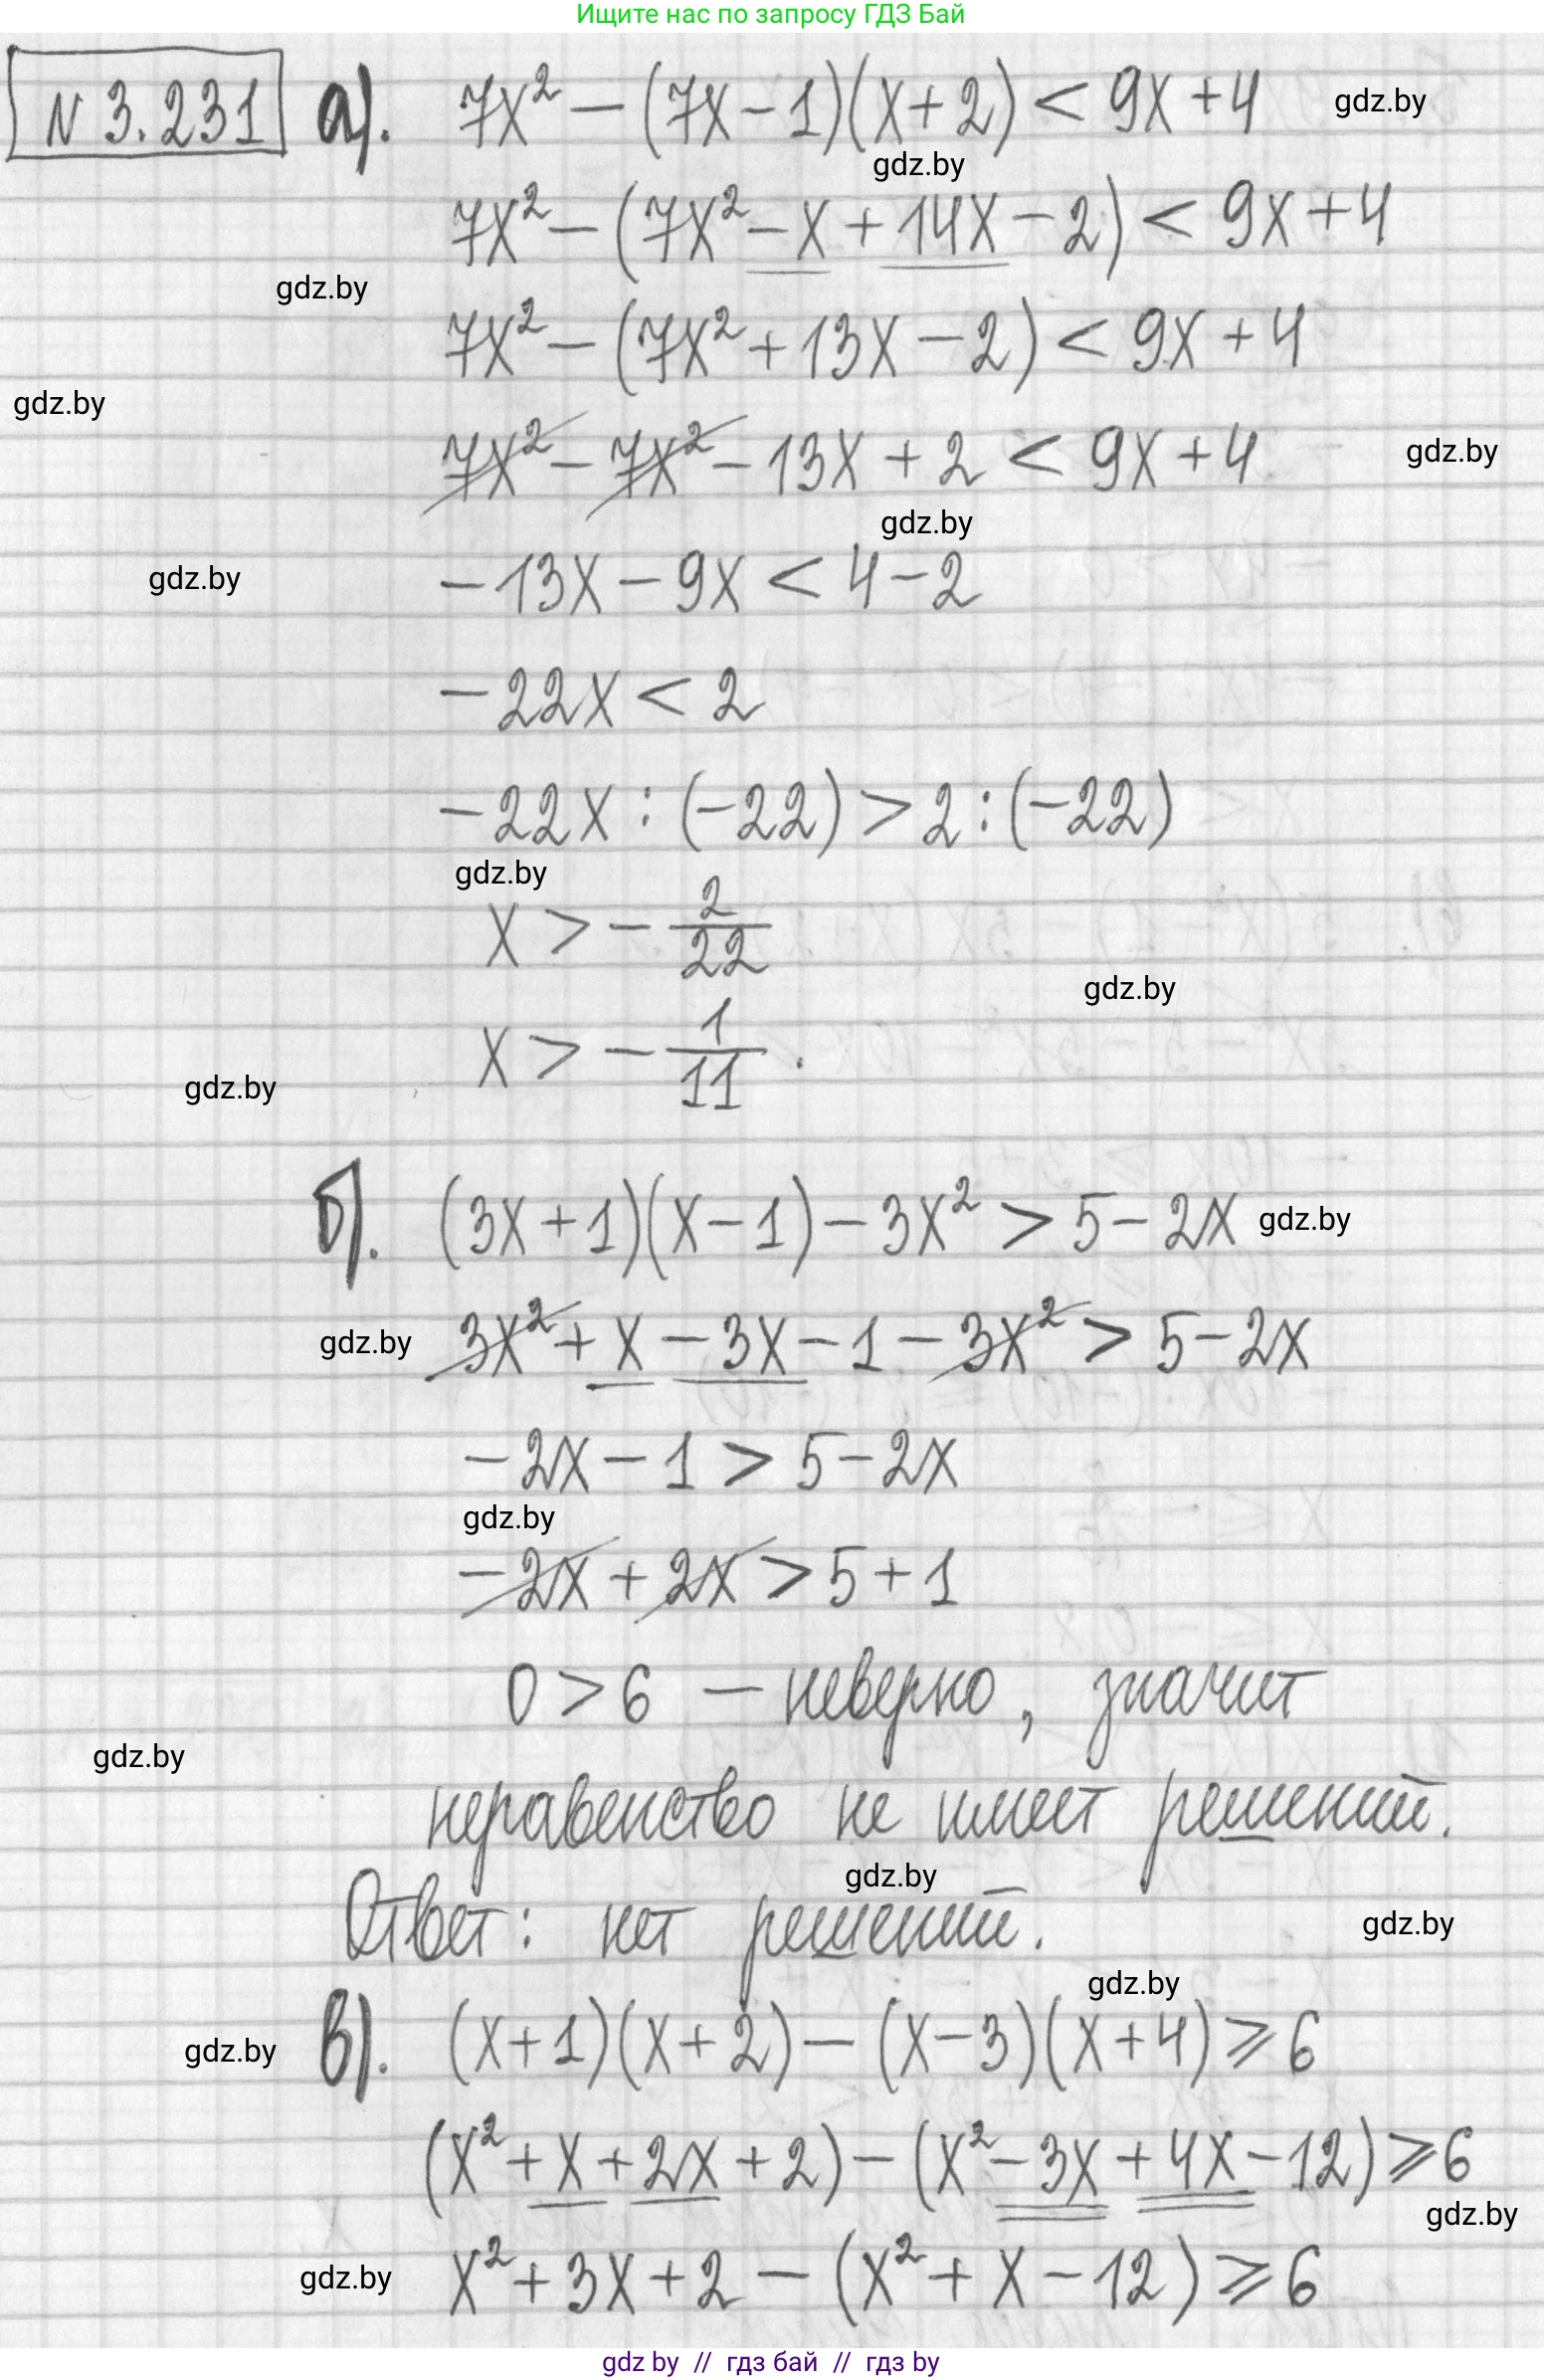 Ищите нас по запросу ГДЗ Бай
N 3.231 а). 7x² − (7x − 1)(x + 2) < 9x + 4 gdz.by
gdz.by
7x² − (7x² − x + 14x − 2) < 9x + 4
gdz.by
7x² − (7x² + 13x − 2) < 9x + 4
gdz.by
7x² − 7x² − 13x + 2 < 9x + 4 gdz.by
gdz.by
gdz.by −13x − 9x < 4 − 2
−22x < 2
−22x : (−22) > 2 : (−22)
gdz.by
x > − 2/22
gdz.by
x > − 1/11 .
gdz.by
б). (3x + 1)(x − 1) − 3x² > 5 − 2x gdz.by
gdz.by 3x² + x − 3x − 1 − 3x² > 5 − 2x
−2x − 1 > 5 − 2x
gdz.by
−2x + 2x > 5 + 1
0 > 6 — неверно, значит
gdz.by
неравенство не имеет решений.
gdz.by
Ответ: нет решений. gdz.by
gdz.by
gdz.by в). (x + 1)(x + 2) − (x − 3)(x + 4) ⩾ 6
(x² + x + 2x + 2) − (x² − 3x + 4x − 12) ⩾ 6
gdz.by
gdz.by x² + 3x + 2 − (x² + x − 12) ⩾ 6
gdz by // гдз бай // гдз by